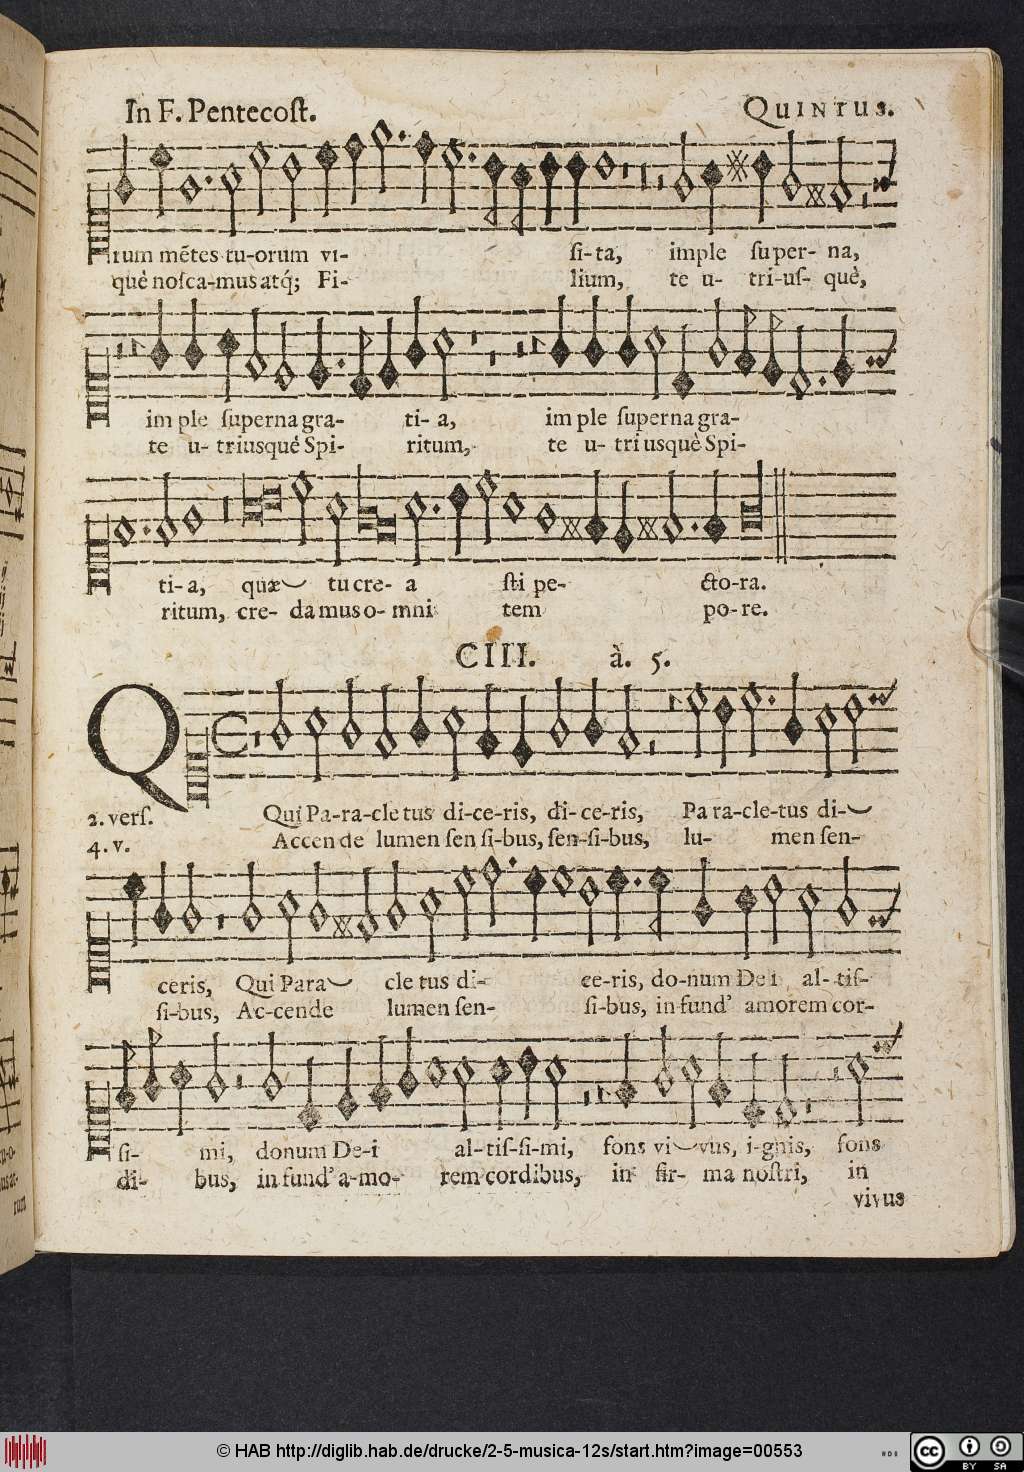 In F. Pentecoſt. QUINTUS.
rum mẽtes tu-orum vi- ſi-ta, imple ſuper- na,
què noſca-mus atq́; Fi- lium, te u- tri-uſ- què,
im ple ſuperna gra- ti- a, im ple ſuperna gra-
te u- triusquè Spi- ritum, te u- triusquè Spi-
ti- a, quæ tu cre- a ſti pe- cto-ra.
ritum, cre- da mus o- mni tem po- re.
CIII. à. 5.
2. verſ. Qui Pa-ra-cle tus di-ce-ris, di-ce-ris, Pa ra-cle-tus di-
4. v. Accen de lumen ſen ſi-bus, ſen-ſi-bus, lu- men ſen-
ceris, Qui Para cle tus di- ce-ris, do-num De i al-tiſ-
ſi-bus, Ac-cende lumen ſen- ſi-bus, in fund' amorem cor-
ſi- mi, donum De-i al-tiſ-ſi-mi, fons vi vus, i-gnis, fons
di- bus, in fund' a-mo- rem cordibus, in fir- ma noſtri, in
vivus
© HAB http://diglib.hab.de/drucke/2-5-musica-12s/start.htm?image=00553
cc BY SA